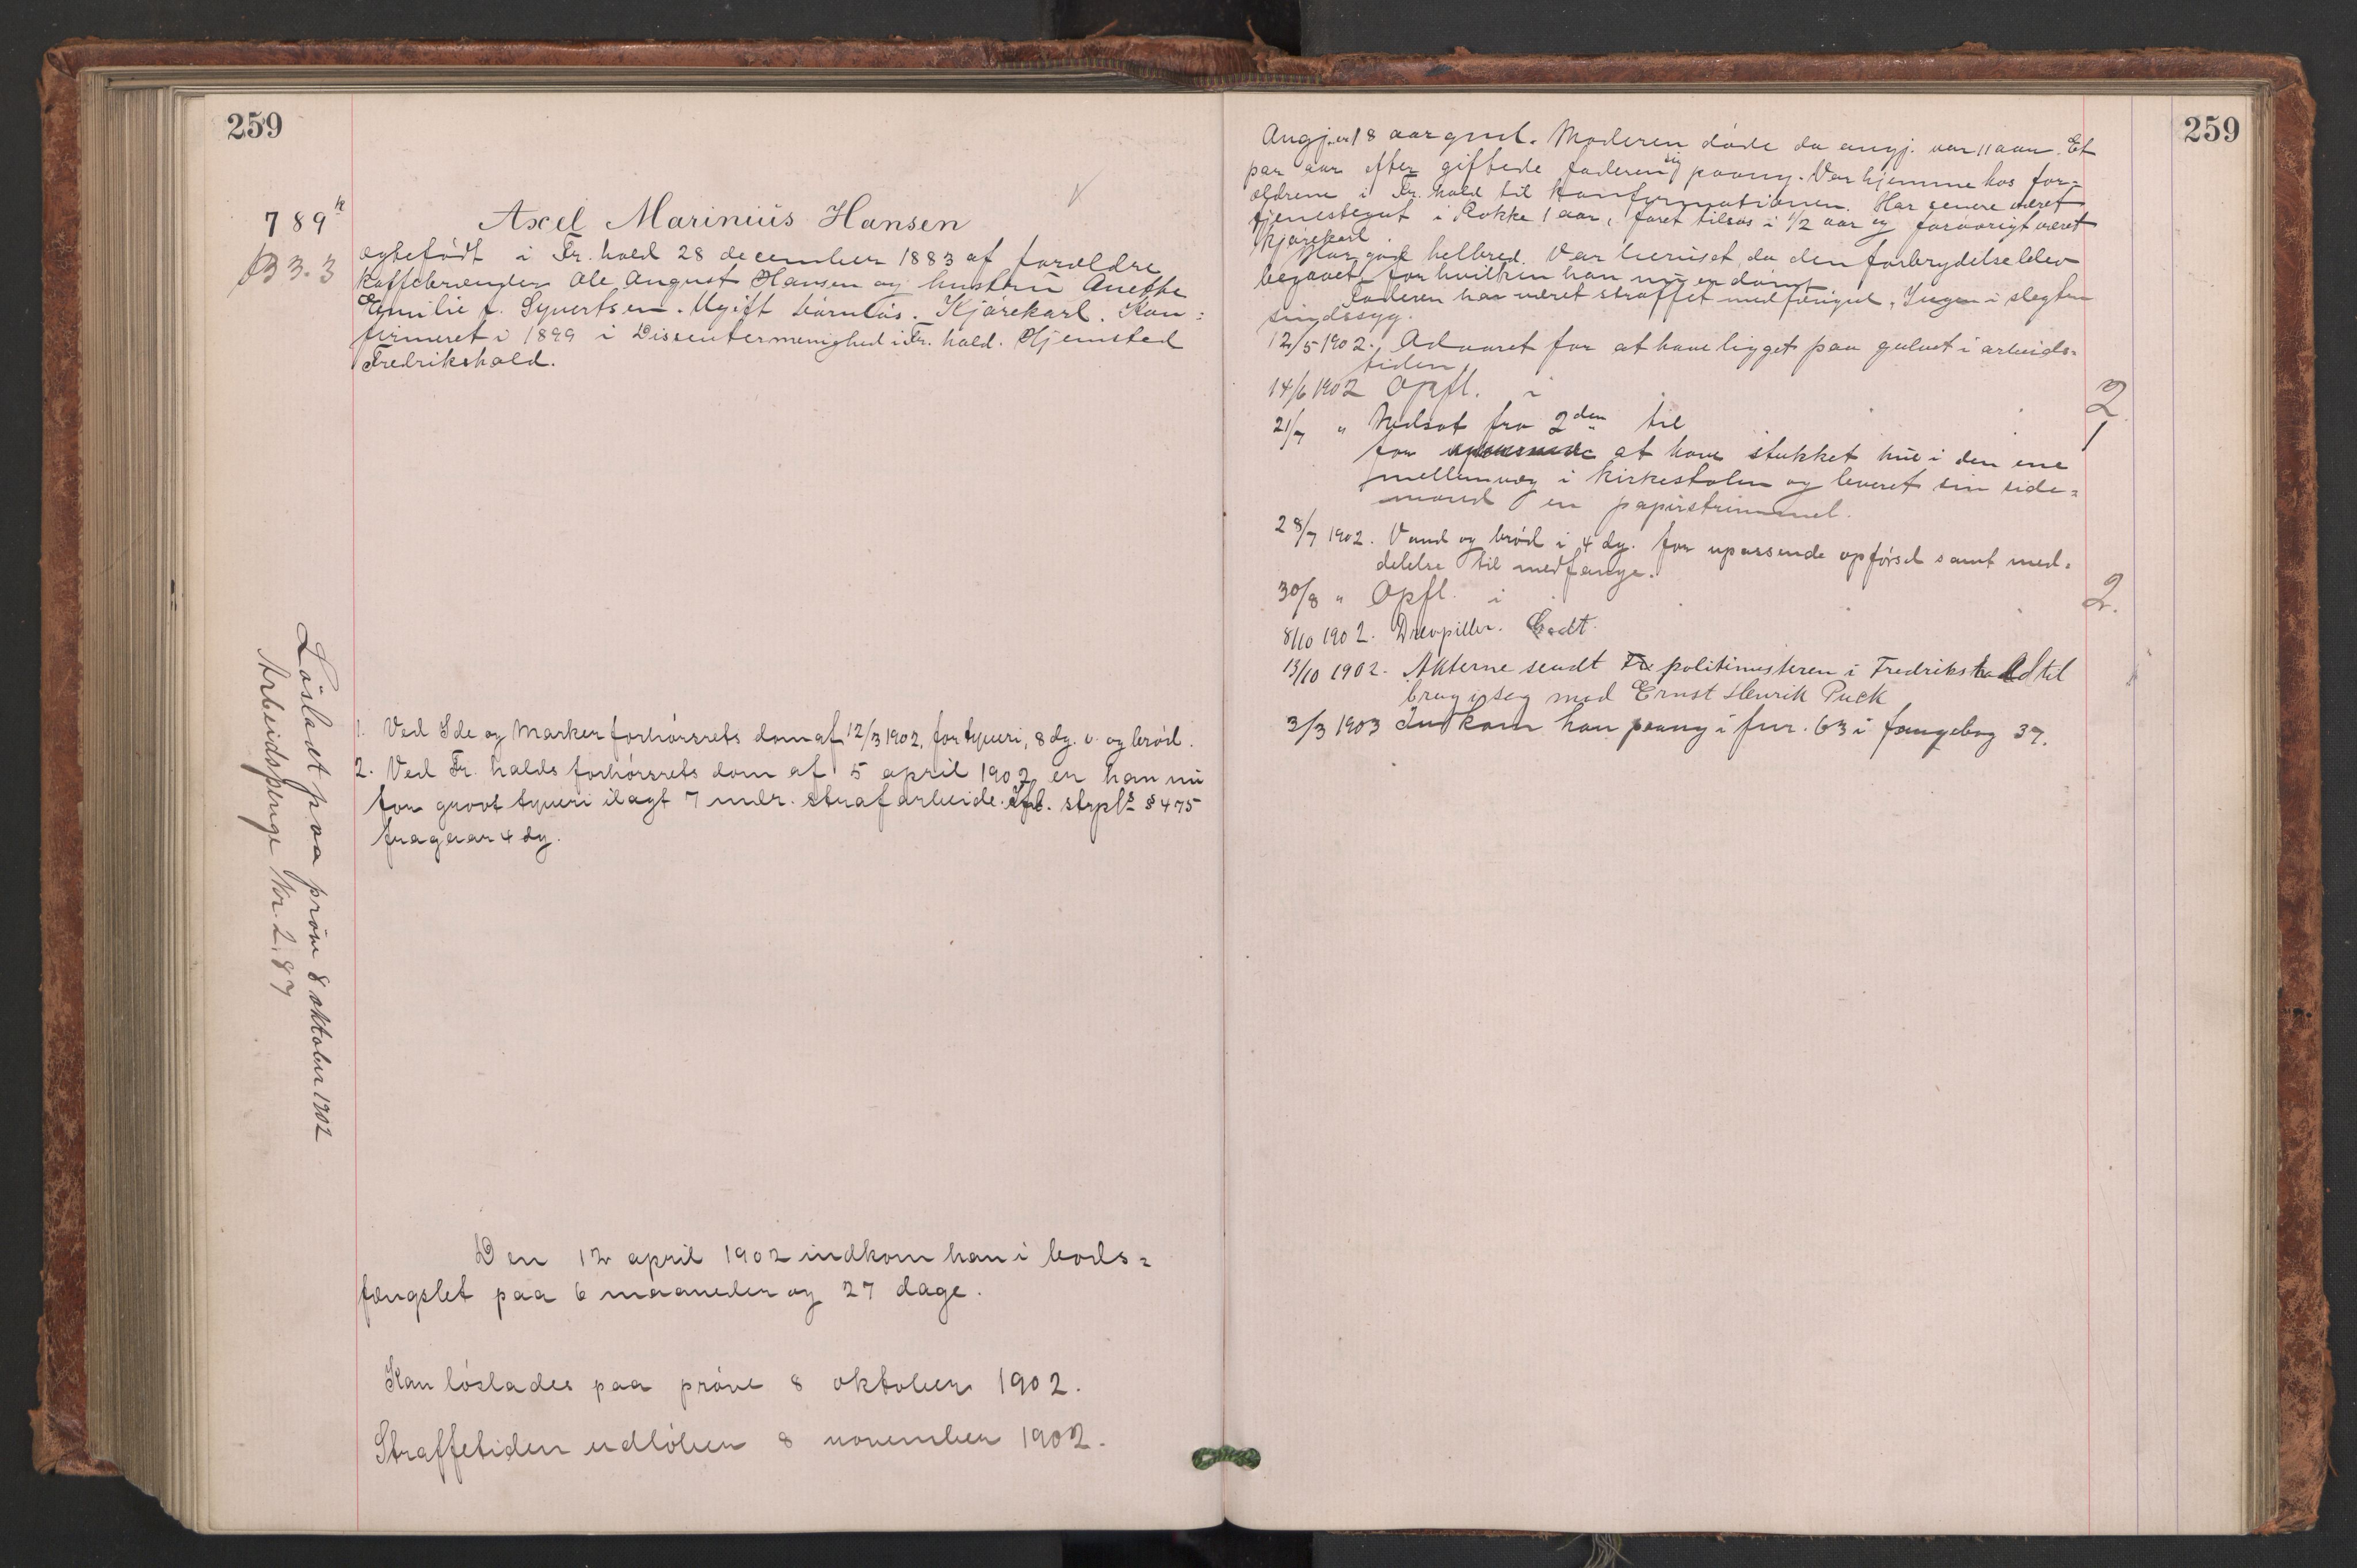 259
789 k
B 3. 3
Axel Marinius Hansen
egtefødt i Fr. hald 28 december 1883 af forældre
kaffebrænder Ole August Hansen og hustru Anethe
Emilie f. Syvertsen. Ugift barnløs. Kjørekarl. Kon=
firmeret i 1899 i Dissentermenighed i Fr. hald. Hjemsted
Fredrikshald.
1. Ved Ide og Marker forhørsrets dom af 12/3 1902, for tyveri, 8 dg. v. og brød.
2. Ved Fr. halds forhørsrets dom af 5 april 1902 er han nu
for grovt tyveri ilagt 7 mdr. strafarbeide. Ifl. strpls § 475
fragaar 4 dg.
Løsladt paa prøve 8 oktober 1902
Arbeidspenge Kr. 2.87
Den 12 april 1902 indkom han i bods=
fængslet paa 6 maaneder og 27 dage.
Kan løslades paa prøve 8 oktober 1902.
Straffetiden udløber 8 november 1902.
259
Angj. er 18 aar gml. Moderen døde da angj. var 11 aar. Et
par aar efter giftede faderen sig paany. Var hjemme hos for=
ældrene i Fr. hald til konfirmationen. Har senere været
tjenestegut i Rokke 1 aar, faret tilsøs i 1/2 aar og forøvrigt været
kjørekarl.
Har god helbred. Var beruset, da den forbrydelse blev
begaaet, for hvilken han nu er dømt.
Faderen har været straffet med fængsel. Ingen i slegten
sindssyg.
12/5 1902. Advaret for at have ligget paa gulvet i arbeids=
tiden
14/6 1902 Opfl. i 2
21/7 " Nedsat fra 2den til 1
for at have stukket hul i den ene
mellemvæg i kirkestolen og leveret sin side=
mand en papirstrimmel.
28/7 1902. Vand og brød i 4 dg. for upassende opførsel samt med=
delelse til medfange.
30/8 " Opfl. i 2.
8/10 1902. Drevpiller. Godt.
13/10 1902. Akterne sendt politimesteren i Fredrikshald til
brug i sag mod Ernst Henrik Puck
3/3 1903 Indkom han paany i fnr. 63 i fangebog 37.